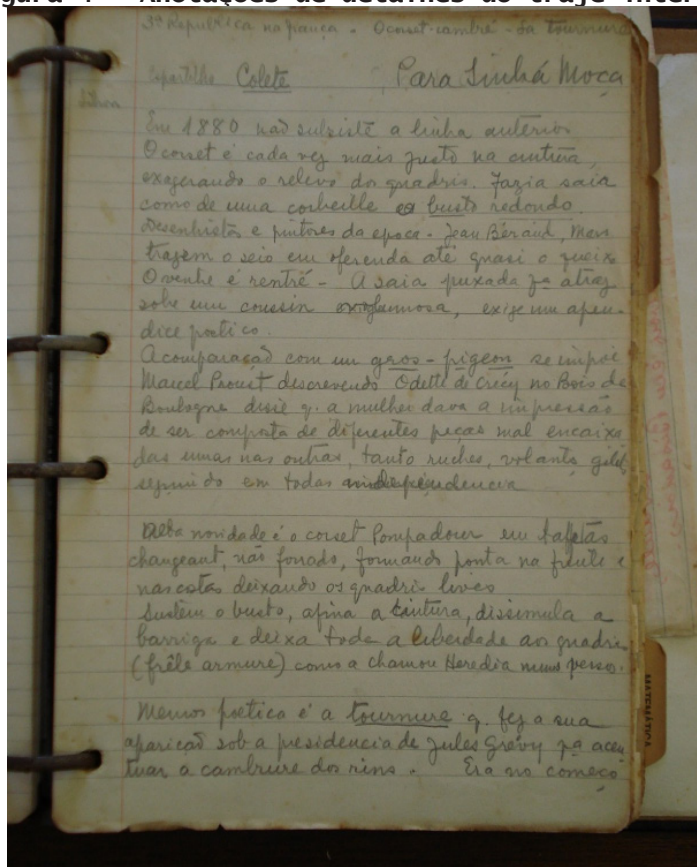 3ª Republica na frança. O corset-cambré - La tournure
Espartilho Colete Para Sinhá Moça
Em 1880 não subsiste a linha anterior
O corset é cada vez mais justo na cintura,
exagerando o relevo dos quadris. Fazia saia
como de uma corbeille o busto redondo.
Desenhistas e pintores da epoca - Jean Béraud, Mars
trazem o seio em oferenda até quasi o queixo
O ventre é rentré - A saia puxada pª atraz
sobre um coussin exige um apen
dice poetico.
A comparação com um gros-pigeon se impõe
Marcel Proust descrevendo Odette de Crécy no Bois de
Boulogne disse q. a mulher dava a impressão
de ser composta de diferentes peças mal encaixa
das umas nas outras, tanto ruches, volants, gilet
seguindo em todas independencia
novidade é o corset Pompadour em tafetás
changeant, não forrado, formando ponta na frente e
nas costas deixando os quadris livres
Sustêm o busto, afina a cintura, dissimula a
barriga e deixa toda a liberdade aos quadris
(frêle armure) como a chamou Heredia num verso.
Menos poetica é a tournure q. fez a sua
aparicaõ sob a presidencia de Jules Grévy pª acen
tuar a cambrure dos rins. Era no começo
MATEMÁTICA